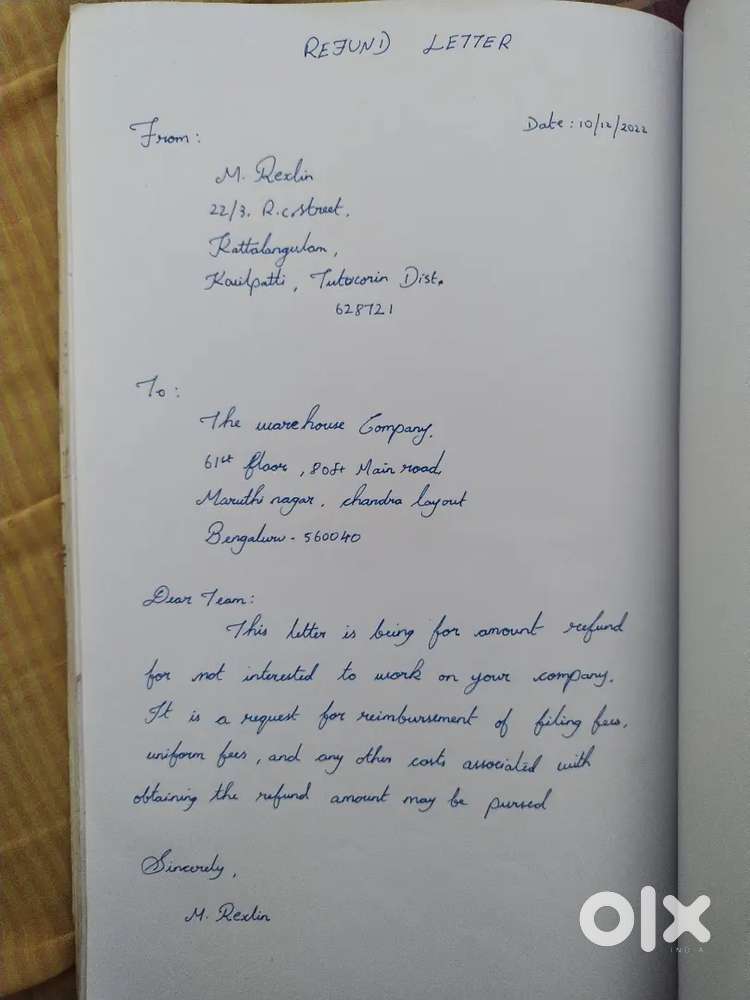 REFUND LETTER
Date : 10/12/2022
From :
M. Rexlin
22/3. R.C. Street,
Kattalangulam,
Kovilpatti, Tutocorin Dist.
628721
To :
The warehouse Company,
61st floor, 80ft Main road,
Maruthi nagar, chandra layout
Bengaluru - 560040
Dear Team :
This letter is being for amount refund
for not interested to work on your company.
It is a request for reimbursement of filing fees,
uniform fees, and any other costs associated with
obtaining the refund amount may be pursed
Sincerely,
M. Rexlin
olx
INDIA